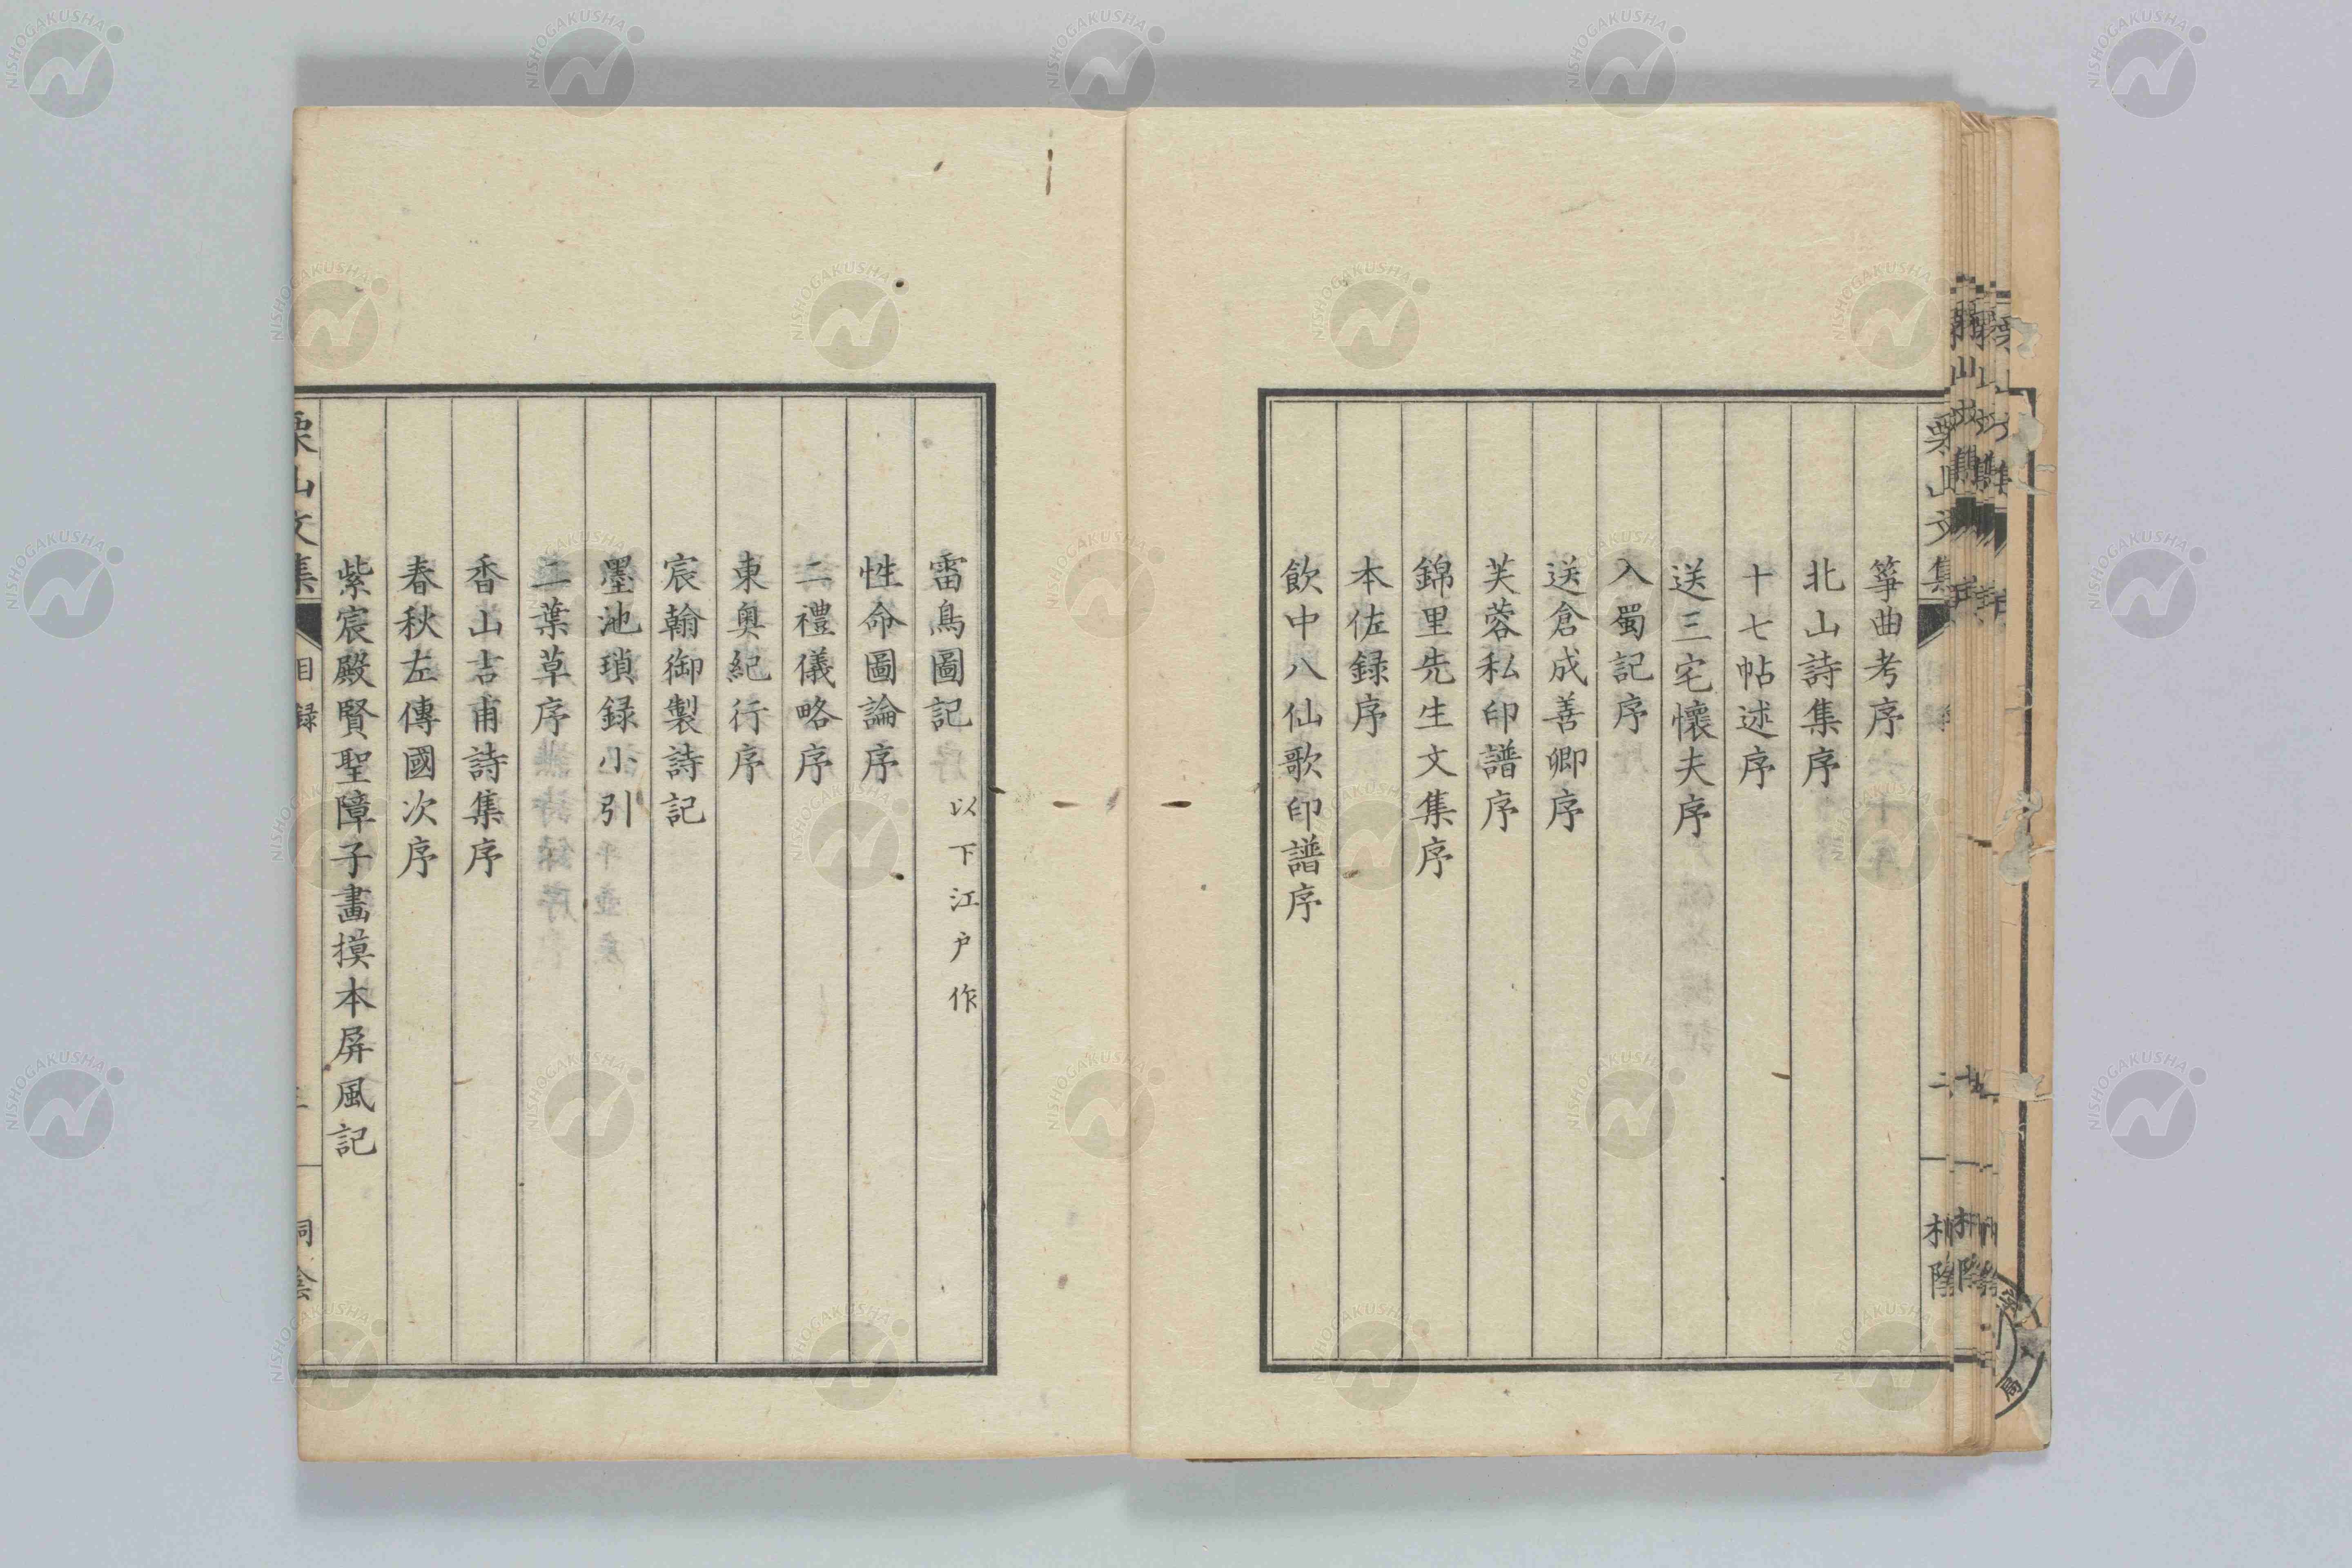 箏曲考序
北山詩集序
十七帖述序
送三宅懷夫序
入蜀記序
送倉成善卿序
芙蓉私印譜序
錦里先生文集序
本佐録序
飲中八仙歌印譜序
雷鳥圖記 以下江戸作
性命圖論序
二禮儀略序
東奥紀行序
宸翰御製詩記
墨池瑣録小引
二葉草序
香山吉甫詩集序
春秋左傳國次序
紫宸殿賢聖障子畫摸本屏風記
栗山文集 目録
NISHOGAKUSHA